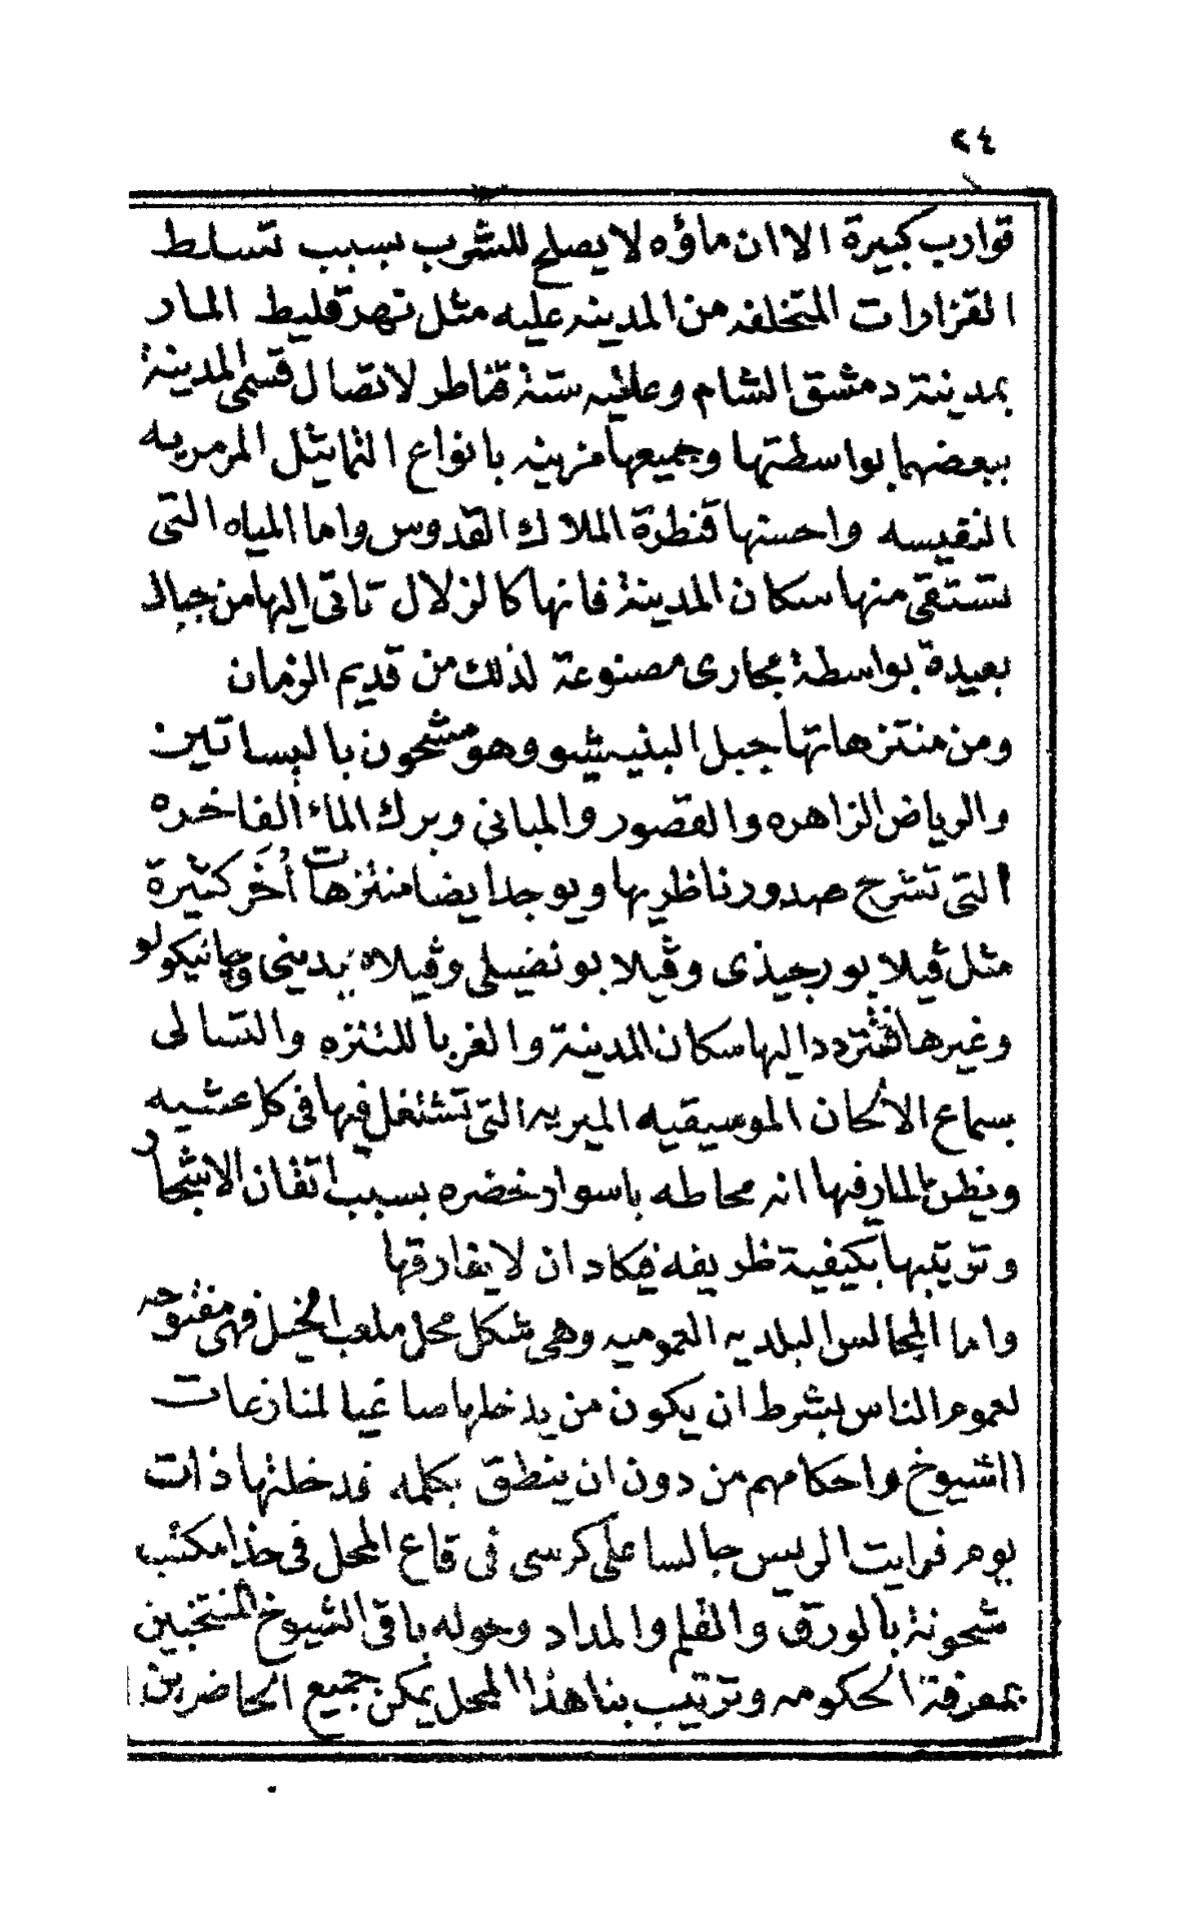 ٢٤
قوارب كبيرة الا ان ماؤه لا يصلح للشرب بسبب تسلط
القزارات المتخلفه من المدينه عليه مثل نهر قليط المار
بمدينة دمشق الشام وعليه ستة قناطر لاتصال قسمى المدينة
ببعضهما بواسطتها وجميعها مزينه بانواع التماثيل المرمريه
النفيسه واحسنها قنطرة الملاك القدوس واما المياه التى
تستقى منها سكان المدينة فانها كالزلال تاتى اليها من جبال
بعيدة بواسطة مجارى مصنوعة لذلك من قديم الزمان
ومن منتزهاتها جبل البنيشيو وهو مشحون بالبساتين
والرياض الزاهره والقصور والمبانى وبرك الماء الفاخره
التى تشرح صدور ناظريها ويوجد ايضا منتزهات أُخَر كثيرة
مثل ڤيلا بورجيذى وڤيلا بونضيلى وڤيلاه بديني وچانيكولو
وغيرها فتتردد اليها سكان المدينة والغربا للتنزه والتسالى
بسماع الالحان الموسيقيه الميريه التى تشتغل فيها فى كل عشيه
ويظن المار فيها انه محاطه باسوار خضره بسبب اتقان الاشجار
وترتيبها بكيفية ظريفه فيكاد ان لا يفارقها
واما المجالس البلديه العموميه وهى شكل محل ملعب الخيل فهى مفتوحه
لعموم الناس بشرط ان يكون من يدخلها صاغيا لمنازعات
الشيوخ واحكامهم من دون ان ينطق بكلمه فدخلتها ذات
يوم فرايت الريس جالسا على كرسى فى قاع المحل فى حذا مكتب
مشحونة بالورق والقلم والمداد وحوله باقى الشيوخ المنتخبين
بمعرفة الحكومه وترتيب بنا هذا المحل يمكن جميع الحاضرين